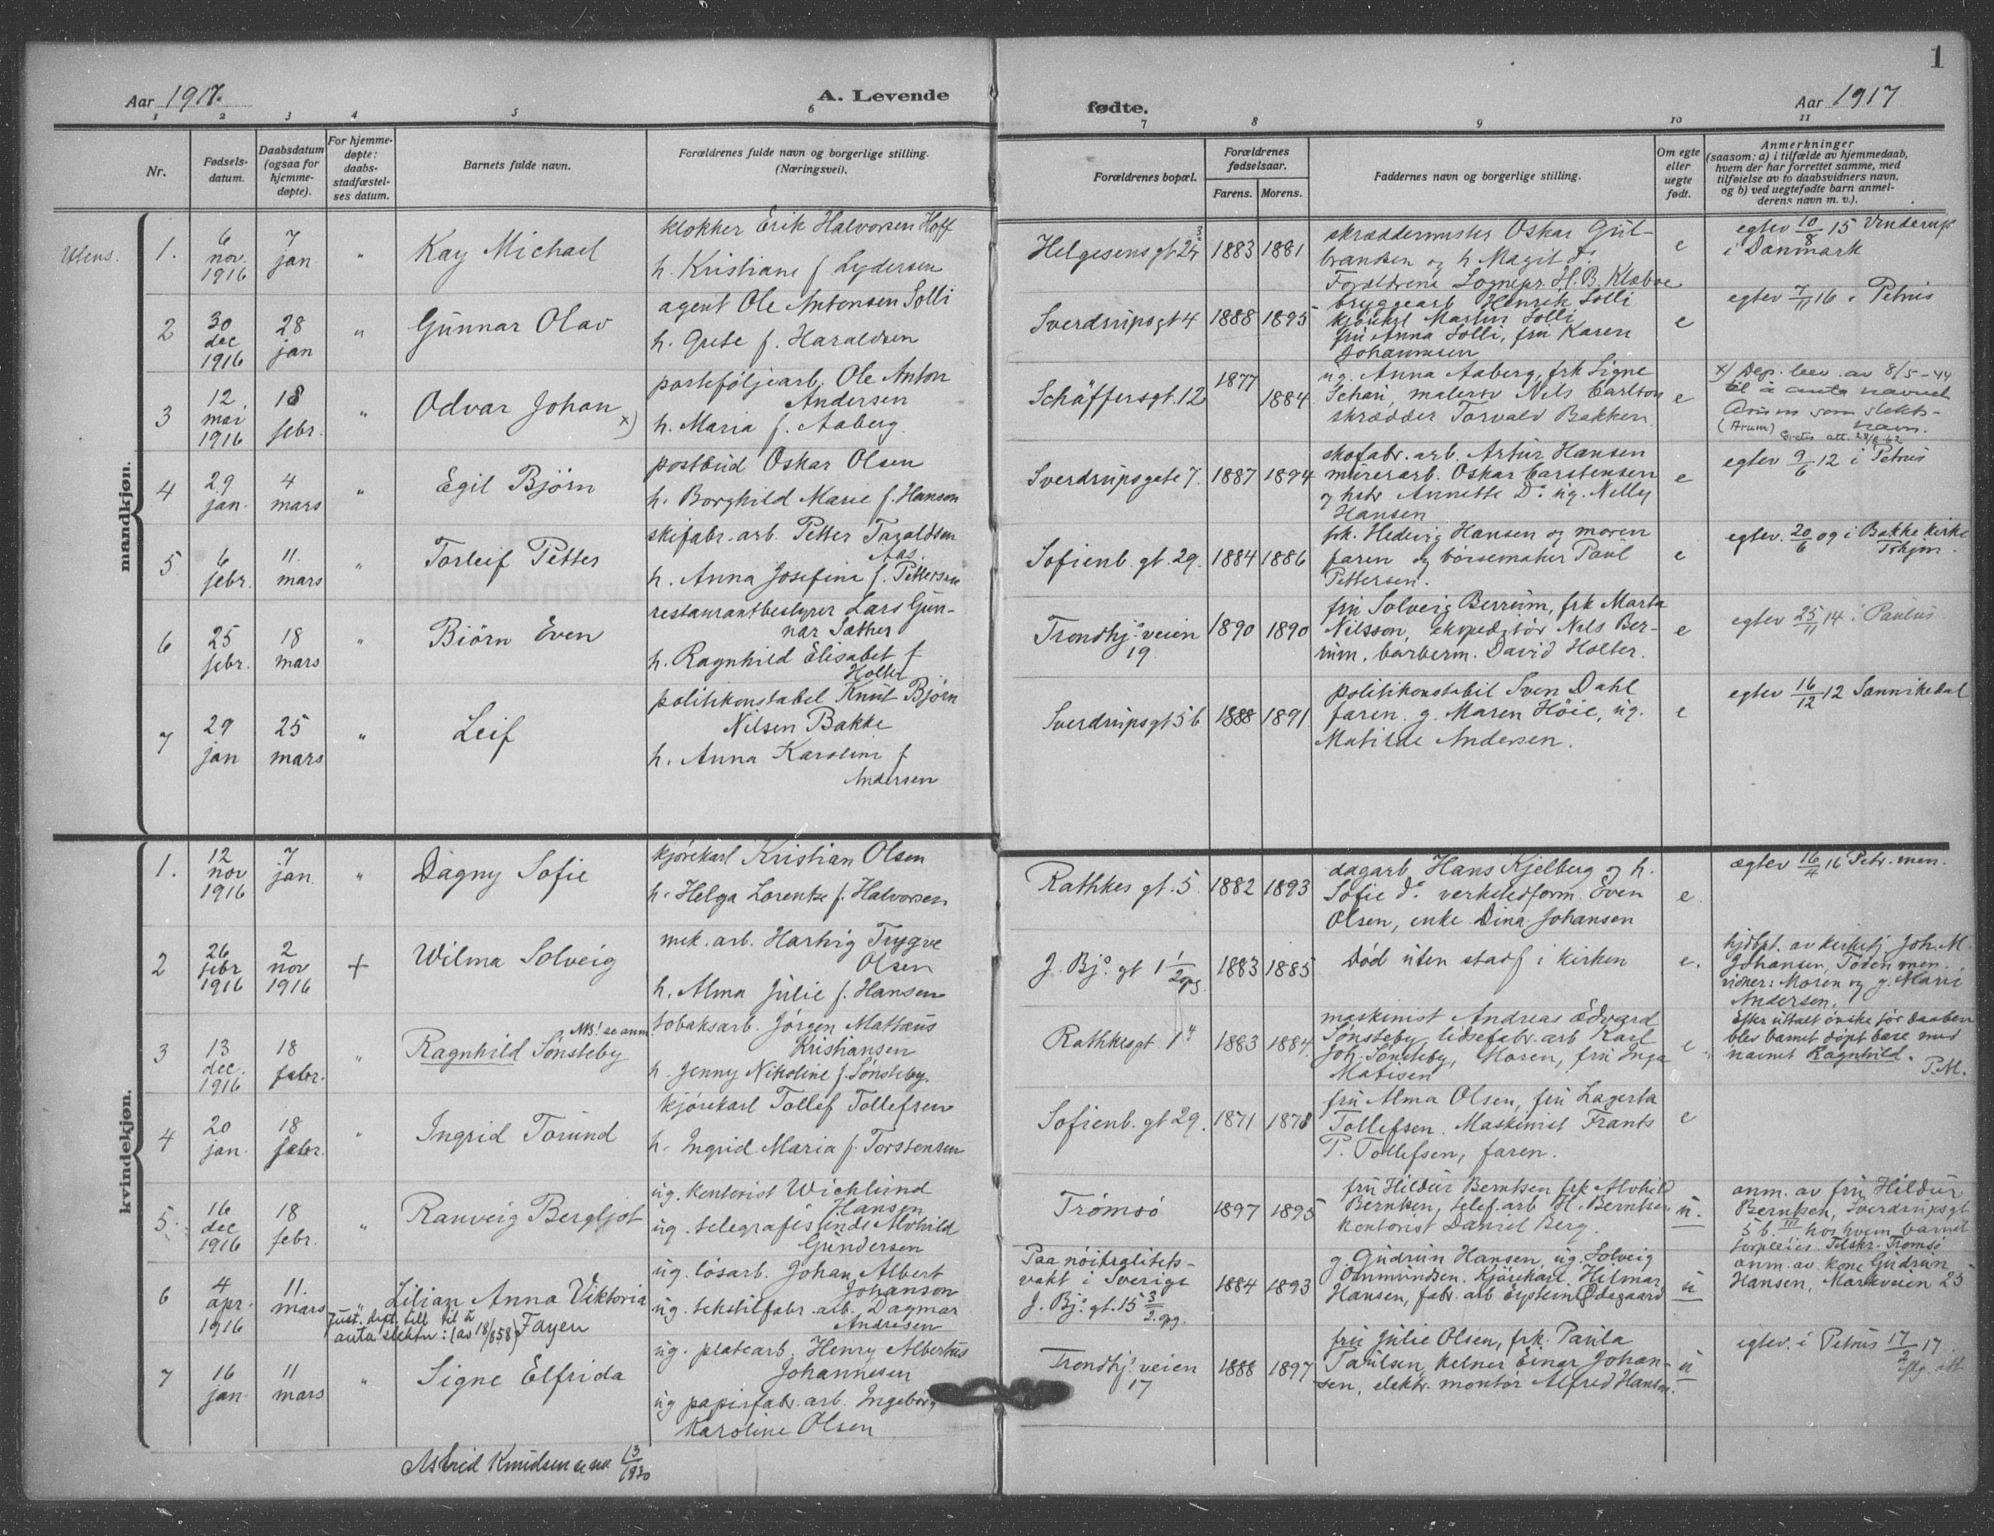 1
Aar 1917.
A. Levende
fødte.
Aar 1917
1 2 3 4 5 6 7 8 9 10 11
Nr.
Fødsels-
datum.
Daabsdatum
(ogsaa for
hjemme-
døpte).
For hjemme-
døpte:
daabs-
stadfæstel-
ses datum.
Barnets fulde navn.
Forældrenes fulde navn og borgerlige stilling.
(Næringsvei).
Forældrenes bopæl.
Forældrenes
fødselsaar.
Farens. Morens.
Faddernes navn og borgerlige stilling.
Om egte
eller
uegte
født.
Anmerkninger
(saasom: a) i tilfælde av hjemmedaab,
hvem der har forrettet samme, med
tilføielse av to daabsvidners navn,
og b) ved uegtefødte barn anmel-
derens navn m. v.).
mandkjøn.
1. 6 nov. 1916
7 jan
"
Kay Michael
klokker Erik Halvorsen Hoff
h. Kristiane f. Lydersen
Helgesens gt
1883 1881
skræddermester Oskar Gul-
bransen og h Magit do
Forældrene Sognepr. H. B. Klæboe
e
egtev 10/8 15 Vinderup
i Danmark
2 30 dec 1916
28 jan
"
Gunnar Olav
agent Ole Antonsen Solli
h. Grete f. Haraldsen
Sverdrupsgt 4
1888 1895
bryggearb Henrik Solli
Martin Solli
fru Anna Solli, fru Karen
Johannesen
e
egtev 7/11 16 i Petrus
3 12 mai 1916
18 febr.
"
Odvar Johan x)
porteføljearb. Ole Anton
Andersen
h. Maria f. Aaberg.
Schäffersgt. 12
1877 1884
ug. Anna Aaberg, frk Signe
malersv Nils Carlson
skrædder Torvald Bakken
e
x) Dep. bev. av 8/5-44
til å anta navnet
Arum som slekts-
(Arum) navn.
4 29 jan.
4 mars
"
Egil Bjørn
postbud Oskar Olsen
h. Borghild Marie f. Hanson
Sverdrupsgate 7.
1887 1894
skofabr. arb. Artur Hansen
murerarb. Oskar Carstensen
og hstr Annette Do ug. Nelly
Hansen
e
egtev 9/6 12 i Petrus
5 6 febr.
11. mars
"
Torleif Petter
skifabr. arb. Petter Taraldsen
Aas.
h. Anna Josefine f. Pettersen
Sofienb. gt. 29.
1884 1886
frk. Hedevig Hansen og moren
faren og børsemaker Paul
Pettersen.
e
egtev. 20/6 09 i Bakke kirke
Trhjm.
6 25 febr.
18 mars
"
Bjørn Even
restaurantbestyrer Lars Gun-
nar Sæther
h. Ragnhild Elisabet f
Holter
Trondhj.veien
19.
1890 1890
fru Solveig Berrum, frk Marta
Nilsson, ekspeditør Nils Ber-
rum, barberm. David Holter.
e
egtev 25/11 14 i Paulus
7 29 jan
25 mars
"
Leif
politikonstabel Knut Bjørn
Nilsen Bakke
h. Anna Karoline f
Andersen
Sverdrupsgt 5b
1888 1891
politikonstabel Sven Dahl
faren. g. Maren Høie, ug.
Matilde Andersen.
e
egtev 16/12 12 Sannikedal
kvindekjøn.
1. 12 nov 1916
7 jan
"
Dagny Sofie
kjørekarl Kristian Olsen
h. Helga Lorentze f. Halvorsen
Rathkes gt. 5.
1882 1893
dagarb Hans Kjelberg og h.
Sofie do verkstedform. Even
Olsen, enke Dina Johansen
e.
ægtev 16/4 16 Petr. men.
2 26 febr 1916
2 nov 1916
+
Wilma Solveig
mek. arb. Hartvig Trygve
Olsen
h. Alma Julie f. Hansen
J. Bjo gt 1 1/2opg.
1883 1885
Død uten stadf i kirken
e.
hjdøpt. av kirketj Joh. M.
Johansen, Tøien men.
vidner: Moren og g. Marie
Andersen.
3 13 dec. 1916
18 febr.
"
NB! se anm.
Ragnhild Sønsteby
tobaksarb. Jørgen Mattæus
Kristiansen
h. Jenny Nikoline f. Sønsteby.
Rathkesgt. 1"
1883 1884.
maskinist Andreas Edvard
Sønsteby, lidsefabr. arb Karl
Joh. Sønsteby, Moren, fru Inga
Matisen
e
Efter uttalt ønske før daaben
blev barnet døpt bare med
navnet Ragnhild.
P.M.
4 20 jan
18 febr.
"
Ingrid Torund
kjørekarl Tollef Tollefsen
h. Ingrid Maria f. Torstensen
Sofienb. gt 29.
1871 1878
fru Alma Olsen, fru Lagerta
Tollefsen. Maskinist Frants
P. Tollefsen, faren.
e
5 16 dec 1916
18 febr.
"
Ranveig Bergljot
ug. kontorist Wicklund
Hansen
ug. telegrafistinde Alvhild
Gundersen
Tromsø
1897 1895
fru Hildur Berntsen frk Alvhild
Berntsen, telef. arb H. Berntsen
kontorist Daniel Berg.
u.
anm. av fru Hildur
Berntsen, Sverdrupsgt
5 b. III hos hvem barnet
forpleies. Tilskr. Tromsø
6 4 apr. 1916
11. mars
"
Lilian Anna Viktoria
Just. dept. till til å
anta slektn: (av 18/8 58) Fayen
ug. løsarb. Johan Albert
Johanson
ug. tekstilfabr. arb. Dagmar
Andresen
Paa nøitralitets-
vakt i Sverige
J. Bjo gt. 15 3/2. opg.
1884 1893
g Gudrun Hansen, ug. Solveig
Ormundsen. Kjørekarl Hilmar
Hansen, fabr. arb Eystein Ødegaard
u
anm. av kone Gudrun
Hansen, Markveien 25
7 16 jan.
11 mars
"
Signe Elfrida
ug. platearb. Henry Albertus
Johannesen
ug papirfabr. arb. Ingeborg
Karoline Olsen
Trondhj. veien
17
1888 1897
fru Julie Olsen, frk. Paula
Paulsen, kelner Einar Johan-
sen, elektr. montør Alfred Hansen.
u
egtev. i Petrus 17/2 17.
Astrid Knudsen se 13/1930